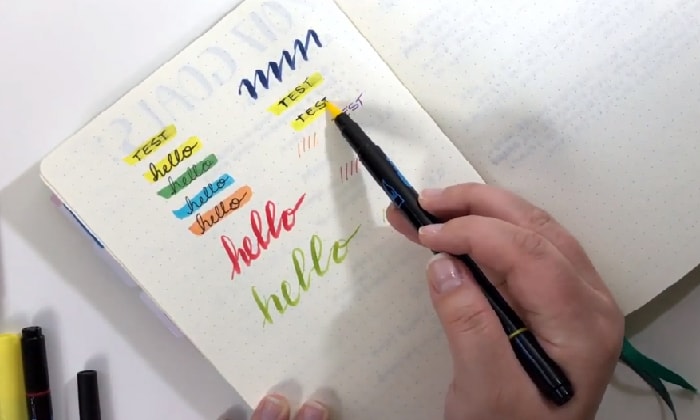 TEST
TEST
TEST
TEST
hello
hello
hello
hello
hello
hello